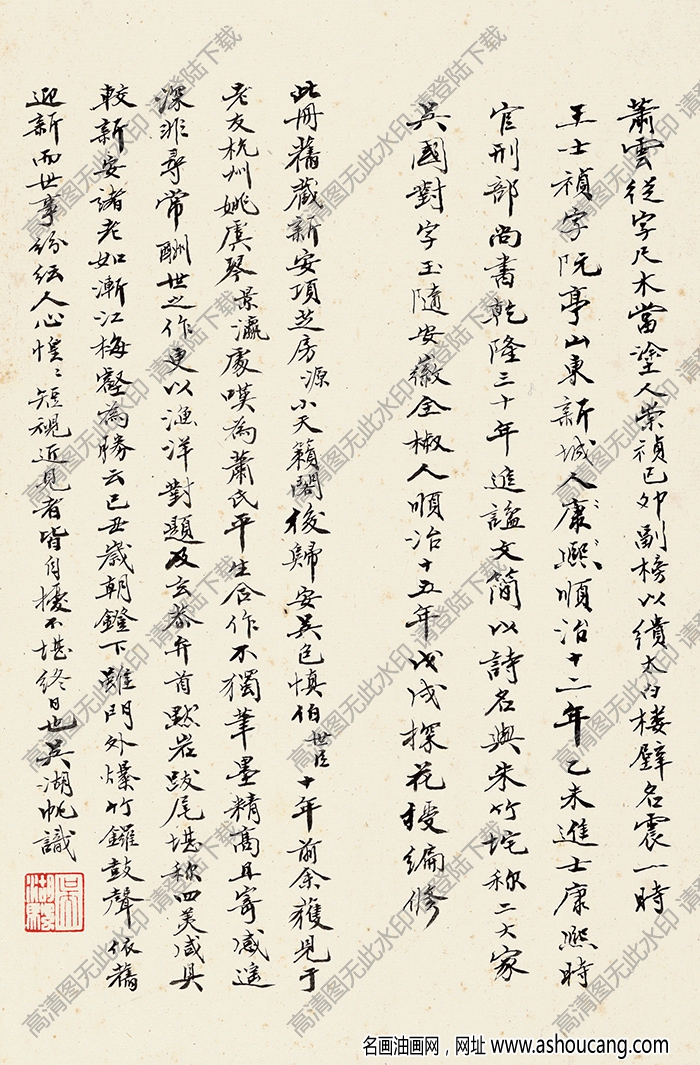 蕭雲從字尺木當塗人崇禎己卯副榜以繢太白樓壁名震一時
王士禎字阮亭山東新城人康熙順治十二年乙未進士康熙時
官刑部尚書乾隆三十年進謚文簡以詩名與朱竹垞称二大家
吳國對字玉隨安徽全椒人順治十五年戊戌探花授編修
此冊舊藏新安項芝房源小天籟閣後歸安吳邑慎伯世臣十年前余獲見于
老友杭州姚虞琴景瀛處嘆為蕭氏平生合作不獨筆墨精高且寄感遥
深非尋常酬世之作更以漁洋對題及玄恭弁首默岩跋尾堪称四美咸具
較新安諸老如漸江梅壑為勝云己丑歲朝鐙下雖門外爆竹鑼鼓聲依舊
迎新而世事紛紜人心惶〻短視近見者皆自擾不堪終日也吳湖帆識
吳湖颿
高清图无此水印 请登陆下载
名画油画网，网址 www.ashoucang.com